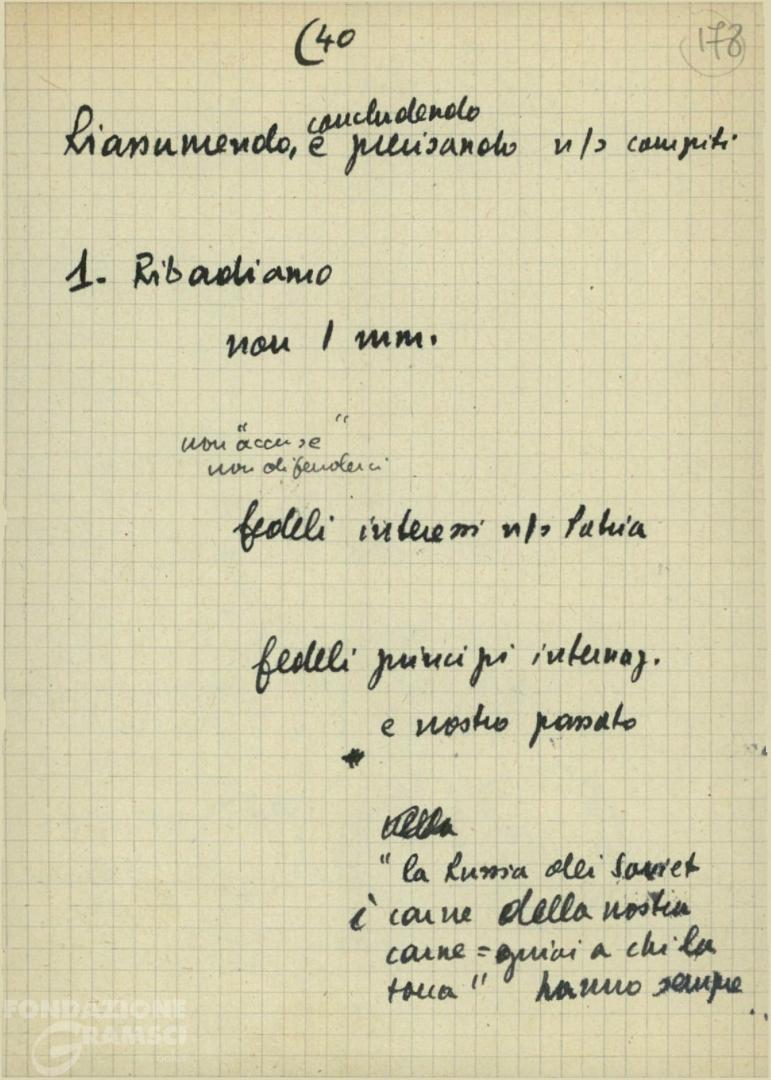 (40
178
concludendo
Riassumendo, e precisando n/s compiti
1. Ribadiamo
non 1 mm.
non "accuse"
non difenderci
fedeli interessi n/s Patria
fedeli principi internaz.
e nostro passato
"la Russia dei Soviet
è carne della nostra
carne = guai a chi la
tocca" hanno sempre
FONDAZIONE
GRAMSCI